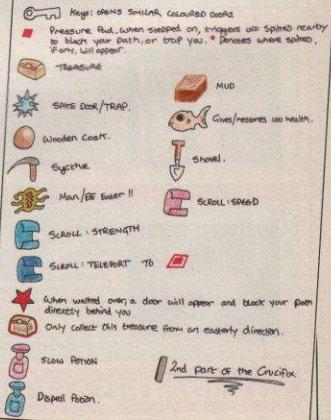 Keys: OPENS SIMILAR COLOURED DOORS
Pressure Pad, when stepped on, triggers off Spikes nearby
to block your path, or trap you. * Denotes where spikes,
if any, will appear.
TREASURE
MUD
SPIKE DOOR/TRAP.
Gives/restores 100 health.
Wooden Cask.
Shovel.
Sycthe
Man/EE Eater !!
SCROLL: SPEED
SCROLL: STRENGTH
SCROLL: TELEPORT TO
When walked over, a door will appear and block your path
directly behind you
Only collect this treasure from an easterly direction.
SLOW POTION
2nd part of the Crucifix.
Dispell Potion.